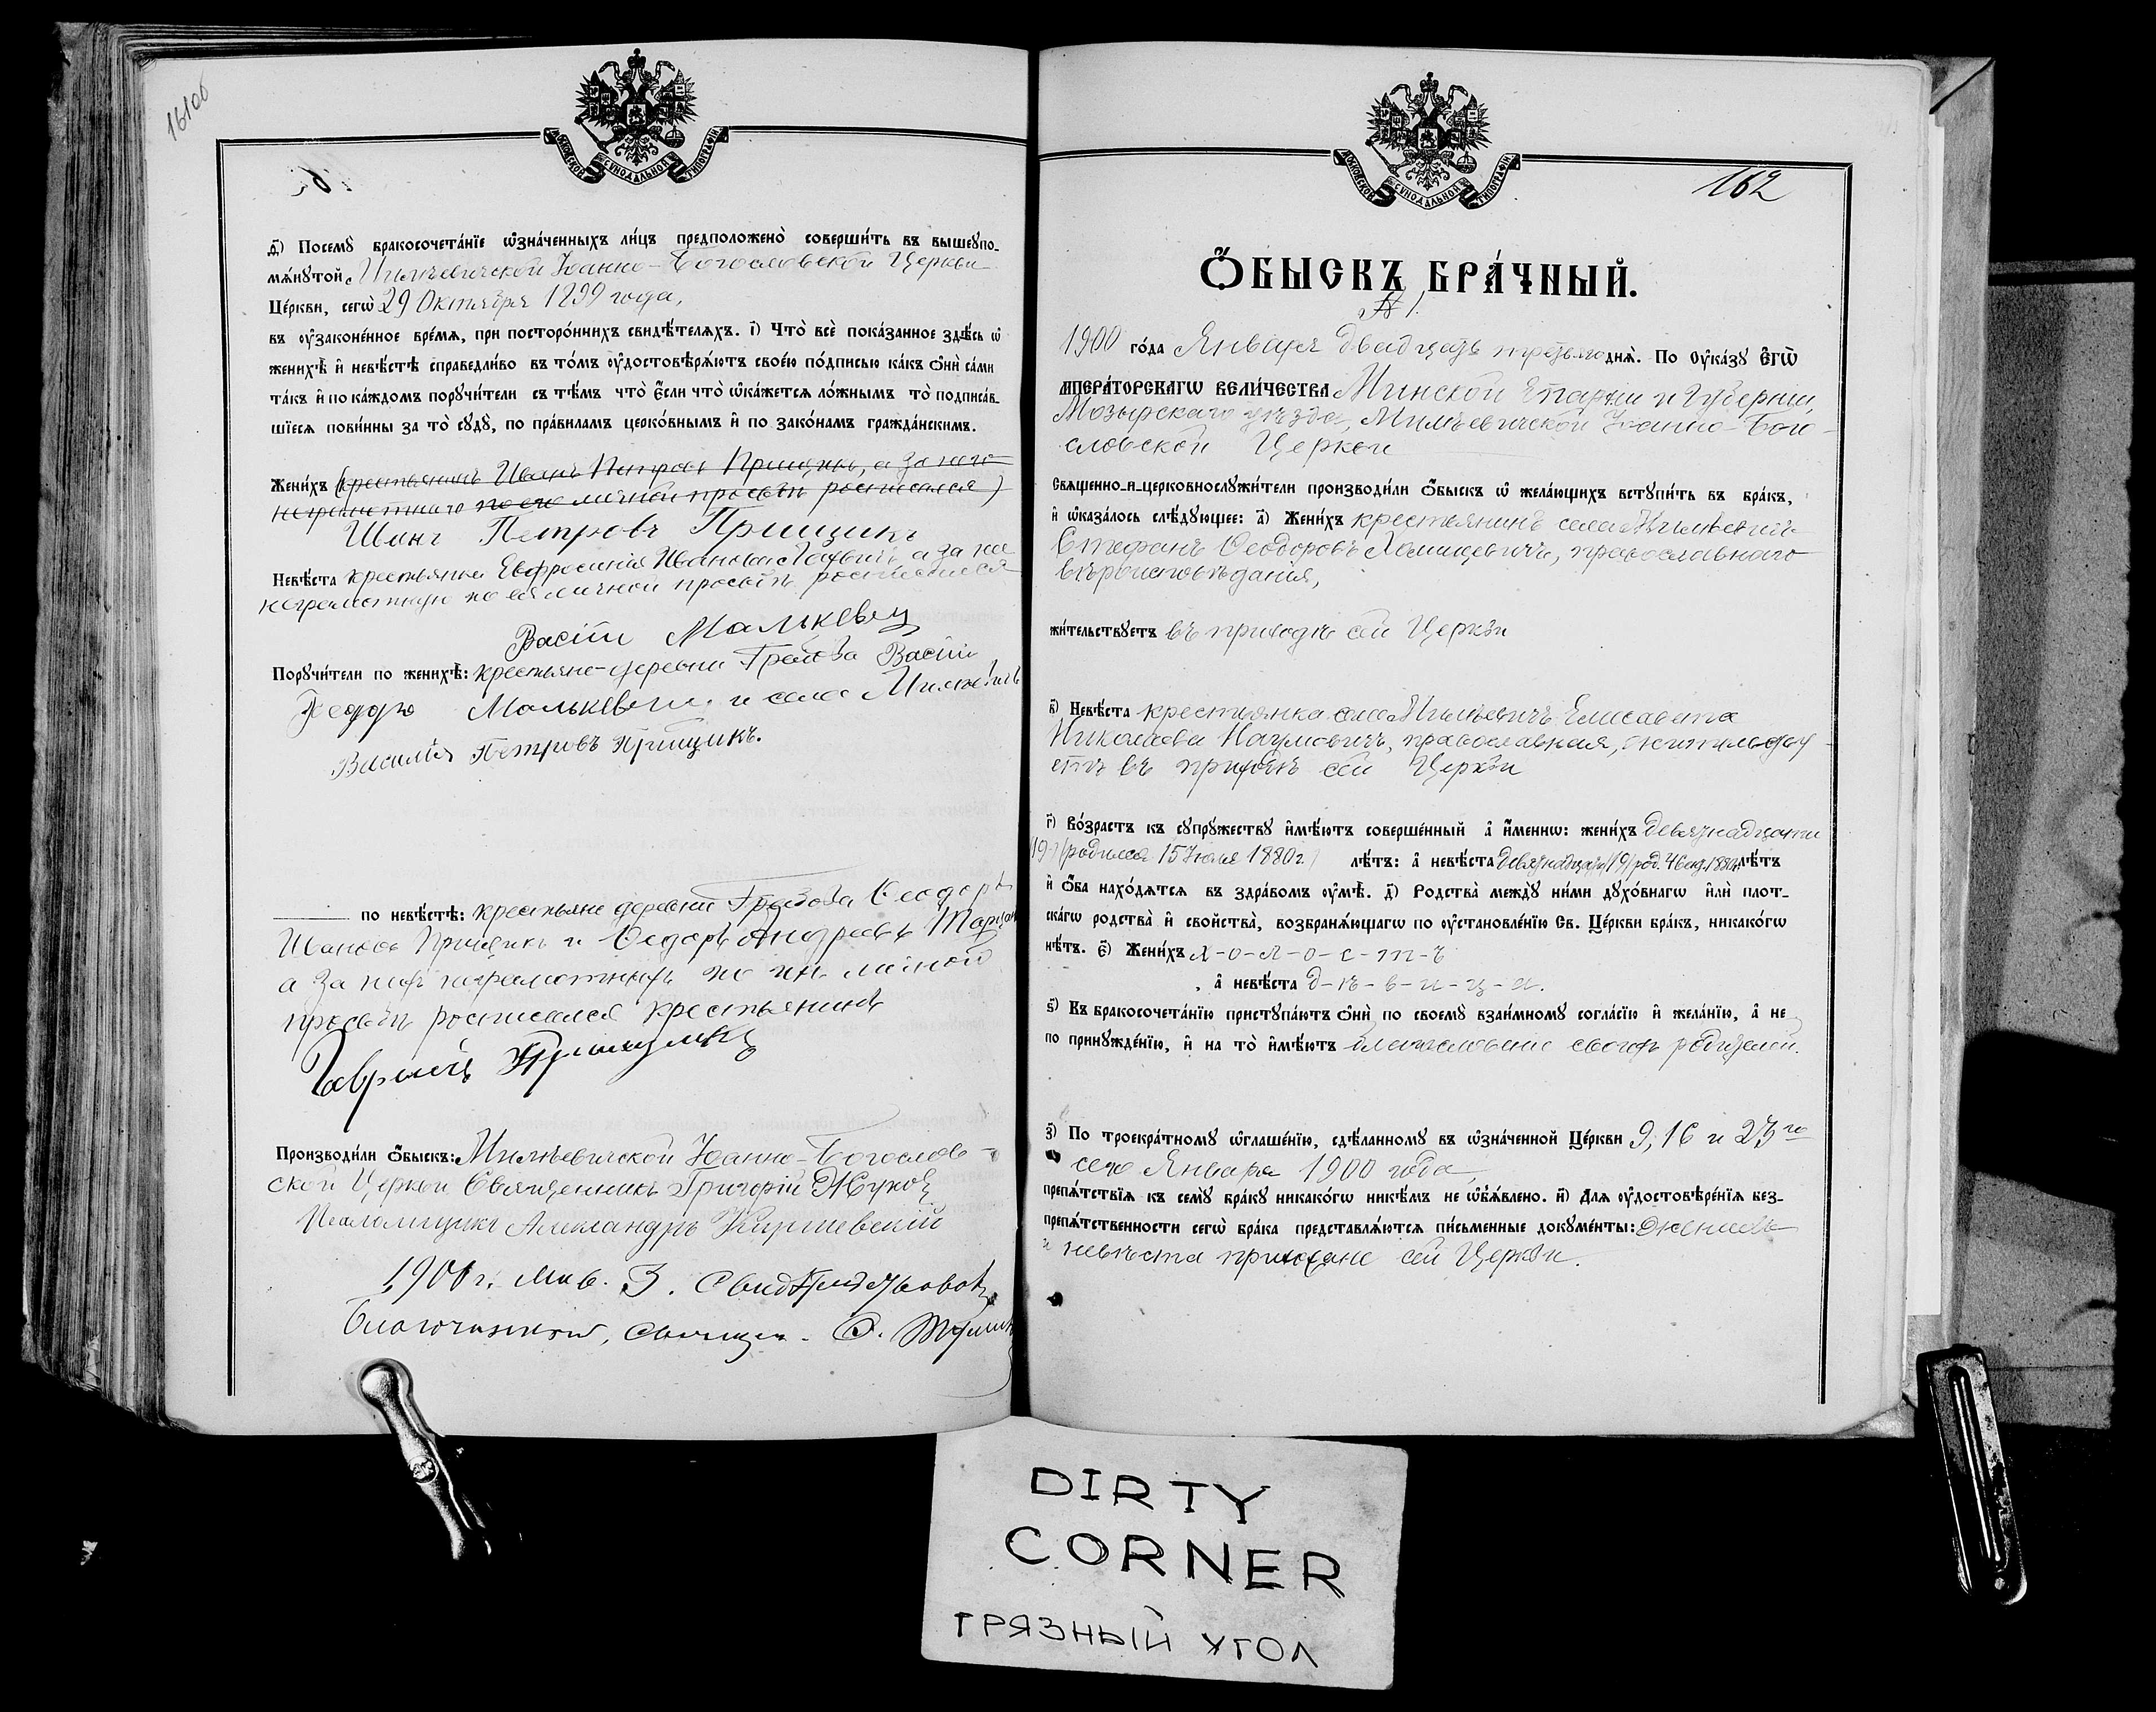 161об
МОСКОВСКОЙ СѴНОДАЛЬНОЙ ТИПОГРАФІИ
ѳ҃) Посемꙋ̀ бракосочета́нїе ѡ҆зна́ченныхъ ли́цъ предположено̀ соверши́ть въ вышеꙋпо-
мѧ́нꙋтой Милѣевичской Іоанно-Богословской Церкви
Це́ркви, сегѡ̀ 29 Октября 1899 года,
въ ᲂу҆зако́ненное вре́мѧ, при посторо́ннихъ свидѣ́телѧхъ. і҃) Что̀ всѐ пока́занное здѣ́сь ѡ҆
женихѣ̀ и҆ невѣ́стѣ справедли́во въ то́мъ ᲂу҆достовѣрѧ́ютъ свое́ю по́дписью ка́къ ѻ҆нѝ са́ми
та́къ и҆ по ка́ждомъ порꙋчи́тели съ тѣ́мъ что̀ є҆́сли что̀ ѡ҆ка́жетсѧ ло́жнымъ то̀ подписа́в-
шїесѧ пови́нны за то̀ сꙋдꙋ̀, по пра́виламъ церко́внымъ и҆ по зако́намъ гражда́нскимъ.
Жени́хъ (крестьянинъ Иванъ Петровъ Прищикъ, а за него
неграмотнаго по его личной просьбѣ росписался)
Иванъ Петровъ Прищикъ
Невѣ́ста крестьянка Евфросинія Иванова, а за нее
неграмотную по ея личной просьбѣ росписался
Васіли Малькевич
Порꙋчи́тели по женихѣ̀: крестьяне деревни Грабова Васіли
Малькевич и села Милѣвичъ
Василій Петровъ Прищикъ.
по невѣ́стѣ: крестьяне деревни Грабова Ѳеодоръ
Ивановъ Прищикъ и Ѳедоръ Андреевъ
а за нихъ неграмотныхъ по ихъ личной
просьбѣ росписался крестьянинъ
Гаврииlъ Прищикъ
Производи́ли ѻ҆́быскъ: Милѣевичской Іоанно-Богослов-
ской Церкви Священникъ Григорій Жуковъ
Псаломщикъ Александръ
1900 г. Янв. 3. Свидѣтельствовалъ
Благочинный, священ.
МОСКОВСКОЙ СѴНОДАЛЬНОЙ ТИПОГРАФІИ
162
Ѻ҆́БЫСКЪ БРА́ЧНЫЙ.
№ 1.
1900 го́да Января двадцать третьяго днѧ̀. По ᲂу҆ка́зꙋ Є҆гѡ̀
мпера́торскагѡ вели́чества Минской Епархіи и Губерніи,
Мозырскаго уѣзда, Милѣевичской Іоанно-Бого-
словской Церкви
Свѧще́нно-и-церковнослꙋжи́тели производи́ли ѻ҆́быскъ ѡ҆ жела́ющихъ встꙋпи́ть въ бра́къ,
и҆ ѡ҆каза́лось слѣ́дꙋющее: а҃) Жени́хъ крестьянинъ села Милѣевичъ
Стефанъ Ѳеодоровъ, православнаго
вѣроисповѣданія,
жи́тельствꙋетъ въ приходѣ сей Церкви
в҃) Невѣ́ста крестьянка села Милѣевичъ Елисавета
Николаева Наумовичъ, православная, жительству-
етъ въ приходѣ сей Церкви
г҃) Во́зрастъ къ сꙋпрꙋ́жествꙋ и҆мѣ́ютъ соверше́нный а҆ и҆́меннѡ: жени́хъ девятнадцати
19 (родился 15 Іюля 1880 г.) лѣ́тъ: а҆ невѣ́ста девятнадцать (19) род. лѣ́тъ
и҆ ѻ҆́ба нахо́дѧтсѧ въ здра́вомъ ᲂу҆мѣ̀. д҃) Родства̀ междꙋ̀ ни́ми дꙋхо́внагѡ и҆лѝ плот-
ска́гѡ родства̀ и҆ сво́йства̀, возбранѧ́ющагѡ по ᲂу҆становле́нїю Св. Це́ркви бра́къ, никако́гѡ
нѣ́тъ. є҃) Жени́хъ х-о-л-о-с-т-ъ
, а҆ невѣ́ста д-ѣ-в-и-ц-а.
ѕ҃) Въ бракосочета́нїю пристꙋпа́ютъ ѻ҆нѝ по своемꙋ̀ взаи́мномꙋ согла́сїю и҆ жела́нїю, а҆ не
по принꙋжде́нїю, и҆ на то̀ и҆мѣ́ютъ благословеніе своихъ родителей.
з҃) По троекра́тномꙋ ѡ҆глаше́нїю, сдѣ́ланномꙋ въ ѡ҆зна́ченной Це́ркви 9, 16 и 23го
сего Января 1900 года
препѧ́тствїѧ къ семꙋ̀ бра́кꙋ никако́гѡ никѣ́мъ не ѡ҆б̾ѧ́влено. и҃) Для ᲂу҆достовѣре́нїѧ без-
препѧ́тственности сегѡ̀ бра́ка представлѧ́ютсѧ пи́сьменные докꙋме́нты: женихъ
и невѣста прихожане сей Церкви.
DIRTY
CORNER
ГРЯЗНЫЙ УГОЛ